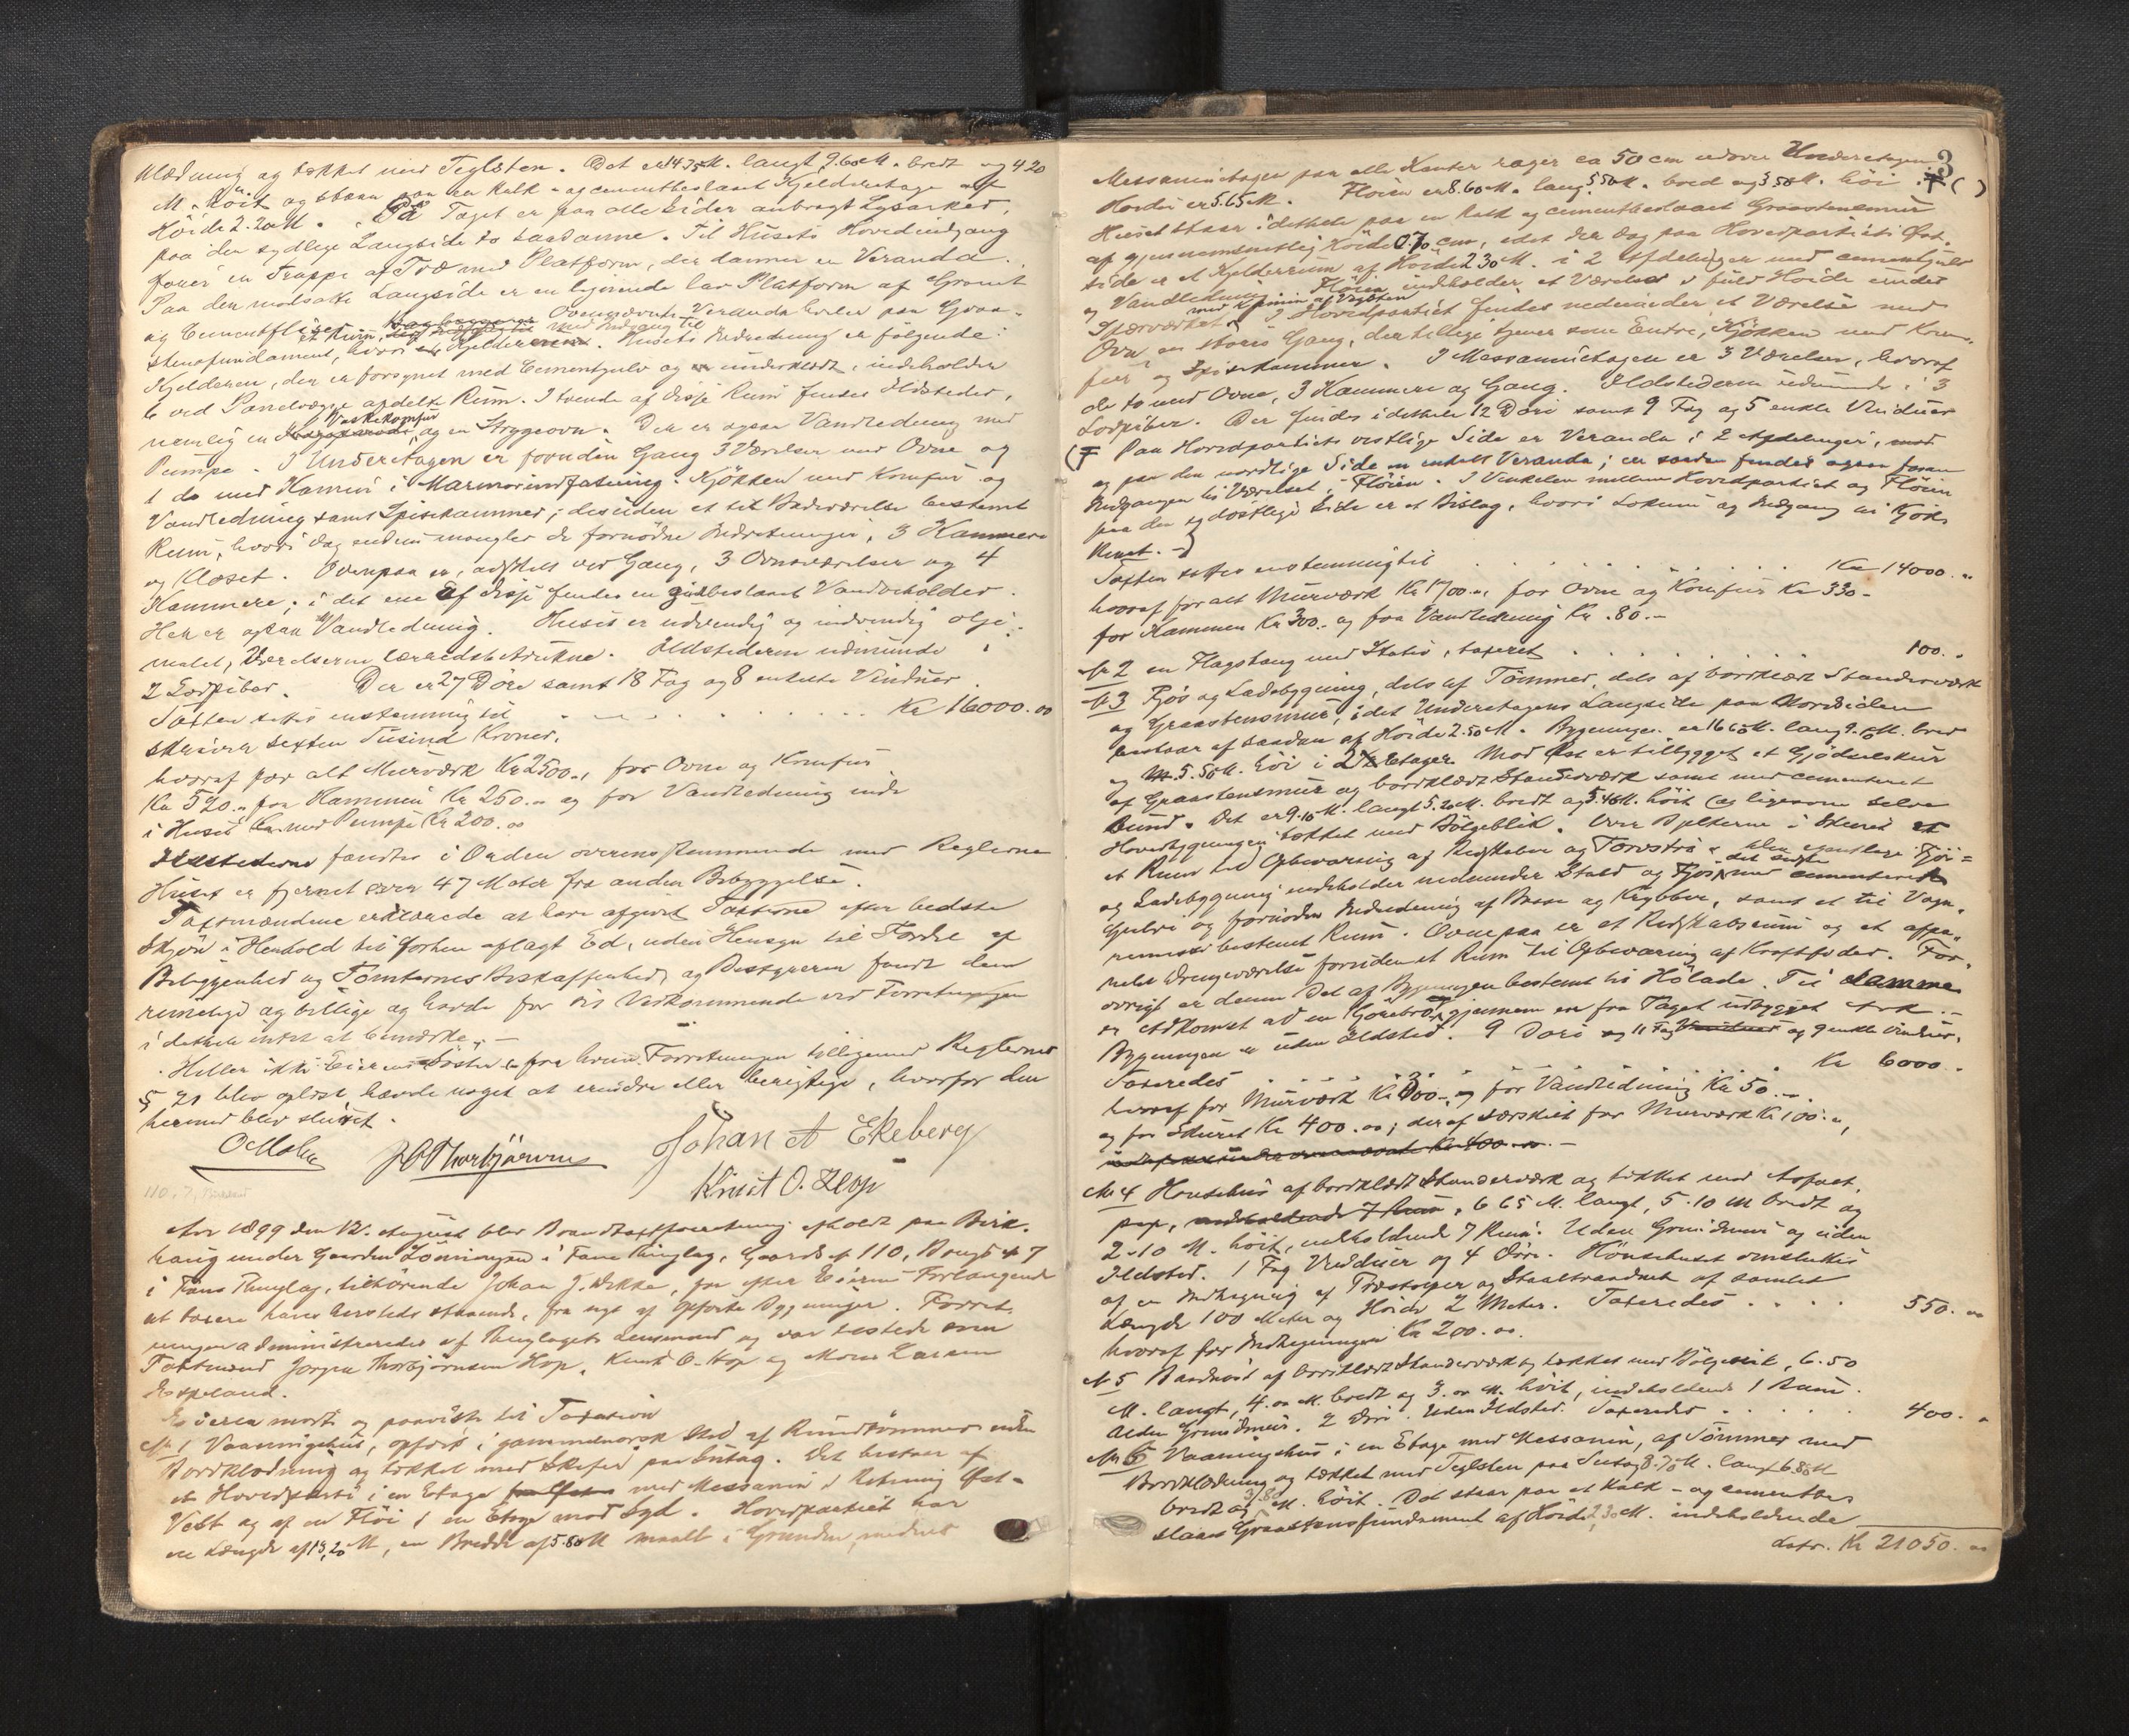 klædning og tækket med Teglsten. Det er 14.35 M. langt 9.60 M. bredt og 4 20
M. höit og staar paa en kalk- og cementbeslaaet Kjelderetage af
Höide 2.20 M. På Taget er paa alle Sider anbragt Lysarker,
paa den sydlige Langside to saadanne. Til Husets Hovedindgang
förer en Trappe af Træ med Platform, der danner en Veranda.
Paa den modsatte Langside er en lignende lav Platform af Granit
og Cementfliser. Ovennævnte Veranda hviler paa Graa-
stensfundament, hvori et Rum, med Indgang til Kjelderen. Husets Indredning er fölgende:
Kjelderen, der er forsynet med Cementgulv og underklædt, indeholder
6 ved Panelvægge afdelte Rum. I tvende af disse Rum findes Ildsteder,
nemlig en Vaskekomfur og en Strygeovn. Der er ogsaa Vandledning med
Pumpe. I Underetagen er foruden Gang 3 Værelser med Ovne og
1 do med Kamin i Marmorindfatning. Kjökken med Komfur og
Vandledning samt Spisekammer; desuden et til Badeværelse bestemt
Rum, hvori dog endnu mangler de fornödne Indretninger, 3 Kammere
og Kloset. Ovenpaa er, adskilt ved Gang, 3 Ovnsværelser og 4
Kammere; i det ene af disse findes en zinkbeslaaet Vandbeholder.
Her er ogsaa Vandledning. Huset er udvendig og indvendig olje-
malet, Værelserne lærredsbetrukne. Ildstederne udmunde i
2 Sodpiber. Der er 27 Döre samt 18 Fag og 8 enkelte Vinduer.
Taxten sattes enstemmig til . . . . . . . . Kr 16000.00
skriver sexten Tusind Kroner.
hvoraf for alt Murværk Kr 2500.-, for Ovne og Komfur
Kr 590.- for Kaminen Kr 250.- og for Vandledning inde
i Huset med Pumpe Kr 200.00
Ildstederne fandtes i Orden overensstemmende med Reglerne
Huset er fjernet over 47 Meter fra anden Bebyggelse.
Taxtmændene erklærede at have afgivet Taxterne efter bedste
Skjön i Henhold til forhen aflagt Ed, uden Hensyn til Fordel af
Beliggenhed og Tomternes Beskaffenhed, og Bestyreren fandt dem
rimelige og billige og havde for sit Vedkommende ved Forretningen
i dethele intet at bemærke. —
Heller ikke Eierens Söster for hvem Forretningen tilligemed Reglernes
§ 21 blev oplæst, havde noget at erindre eller berigtige, hvorfor den
hermed blev sluttet.
Johan A Ekeberg
Knut O. Hop
110, 7, Birkhaug
Aar 1899 den 12. August blev Brandtaxtforretning afholdt paa Birk-
haug under Gaarden Lönningen i Fane Thinglag, Gaards № 110, Brugs № 7
i Fane Thinglag, tilhörende Johan J. Wikka, for efter Eierens Forlangende
at taxere hans hersteds staaende, fra nyt af opförte Bygninger. Forret-
ningen administreredes af Thinglagets Lensmand og var tilstede som
Taxtmænd Jörgen Thorbjörnsen Hop, Knut O. Hop og Mons Larsen
Espeland.
Eieren mödte og paaviste til Taxation
№ 1 Vaaningshus, opfört i gammelnorsk Stil af Rundtömmer uden
Bordklædning og tækket med Skifer paa Sutag. Det bestaar af
et Hovedparti i en Etage med Messanin i Retning Öst-
Vest og af en Flöi i en Etage mod Syd. Hovedpartiet har
en Længde af 13,20 M, en Bredde af 5.80 M maalt i Grunden, medens
3
Messaninetagen paa alle Kanter rager ca 50 cm udover Underetagen
Höiden er 5.65 M. Flöien er 8.60 M. lang 5.50 M. bred og 3.50 M. höi.
Huset staar i dethele paa en kalk og cementbeslaaet Graastensmur
af gjennemsnitlig Höide 0.70 cm, idet der dog paa Hovedpartiets Öst-
side er et Kjelderrum af Höide 2 30 M. i 2 Afdelinger med cementgulv
og Vandledning. Flöien indholder et Værelse i fuld Höide under
Sperværket, med Kamin af Vegsten. I Hovedpartiet findes nedenunder et Værelse med
Ovn, en större Gang, der tillige tjener som Entre, Kjökken med Kom-
fur og Spisekammer. I Messaninetagen er 3 Værelser, hvoraf
de to med Ovne, 3 Kammere og Gang. Ildstederne udmunde i 3
Sodpiber. Der findes i dethele 12 Döre samt 9 Fag og 5 enkle Vinduer
Paa Hovedpartiets vestlige Side er Veranda i 2 Afdelinger, mod
og paa den nordlige Side en enkelt Veranda; en saadan findes ogsaa foran
Indgangen til Værelset i Flöien. I Vinkelen mellem Hovedpartiet og Flöien
paa den sydöstlige Side er et Bislag, hvori Lokum og Indgang til Kjök-
kenet.
Taxten sattes enstemmig til . . . . . . . . Kr 14000.-
hvoraf for alt Murværk Kr 1700.-, for Ovne og Komfur Kr 330.-
for Kaminen Kr 300.- og for Vandledning Kr. 80.-
№ 2 en Flagstang med Stativ, taxeret . . . . . . 100.-
№ 3 Fjös og Ladebygning, dels af Tömmer, dels af bordklædt Standerværk
og Graastensmur, idet Underetagens Langside paa Nordsiden
bestaar af saadan af Höide 2.50 M. Bygningen er 16 65 M. lang 9.10 M. bred
og 5.50 M. höi i 2 Etager. Mod Öst er tilbygget et Gjödselskur
af Graastensmur og bordklædt Standerværk samt med cementeret
Bund. Det er 9.10 M. langt 5.20 M. bredt og 5.48 M. höit og ligesom selve
Hovedbygningen tækket med Bölgeblik. Over Bjelkerne i Skuret er
et Rum til Opbevaring af Redskaber og Torvströ. Den egentlige Fjös-
og Ladebygning indeholder nedenunder Stald og Fjös, det sidste med cementeret
Gulv og fornöden Indredning af Baase og Krybber, samt et til Vogn-
remisse bestemt Rum. Ovenpaa er et Redskabsrum og et afpa-
nelet Drengeværelse foruden et Rum til Opbevaring af Kraftfoder. For-
övrigt er denne Del af Bygningen bestemt til Hölade. Til samme
er Adkomst ad en Kjörebro gjennem en fra Taget udbygget Ark.-
Bygningen er uden Ildsted. 9 Döre og 11 Fag og 9 enkle Vinduer.
Taxeredes . . . . . . . . Kr 6000.-
hvoraf for Murværk Kr 300.- og for Vandledning Kr 50.-,
og for Skuret Kr 400.00; deraf særskilt for Murværk Kr 100.-,
№ 4 Hönsehus af bordklædt Standerværk og tækket med Asfalt-
pap, 6 65 M. langt, 5.10 M bredt og
2.10 M. höit, indholdende 7 Rum. Uden Grundmur og uden
Ildsted. 1 Fag Vinduer og 4 Döre. Hönsehuset omsluttes
af en Indhegning af Træstolper og Staaltraadnet af samlet
Længde 100 Meter og Höide 2 Meter. Taxeredes . . . . 550.00
hvoraf for Indhegningen Kr 200.00.
№ 5 Baadnöst af bordklædt Standerværk og tækket med Bölgeblik, 6.50
M. langt, 4.00 M. bredt og 3.00 M. höit, indeholdende 1 Rum.
Uden Grundmur. 2 Döre. Uden Ildsted. Taxeredes . . . . . 400.-
№ 6 Vaaningshus i en Etage med Messanin, af Tömmer med
Bordklædning og tækket med Teglsten paa Sutag 8.70 M. langt 6.80 M
bredt og 3.80 M. höit. Det staar paa et kalk- og cementbe-
slaaet Graastensfundament af Höide 2,30 M. indeholdende
Latr. Kr 21050.00